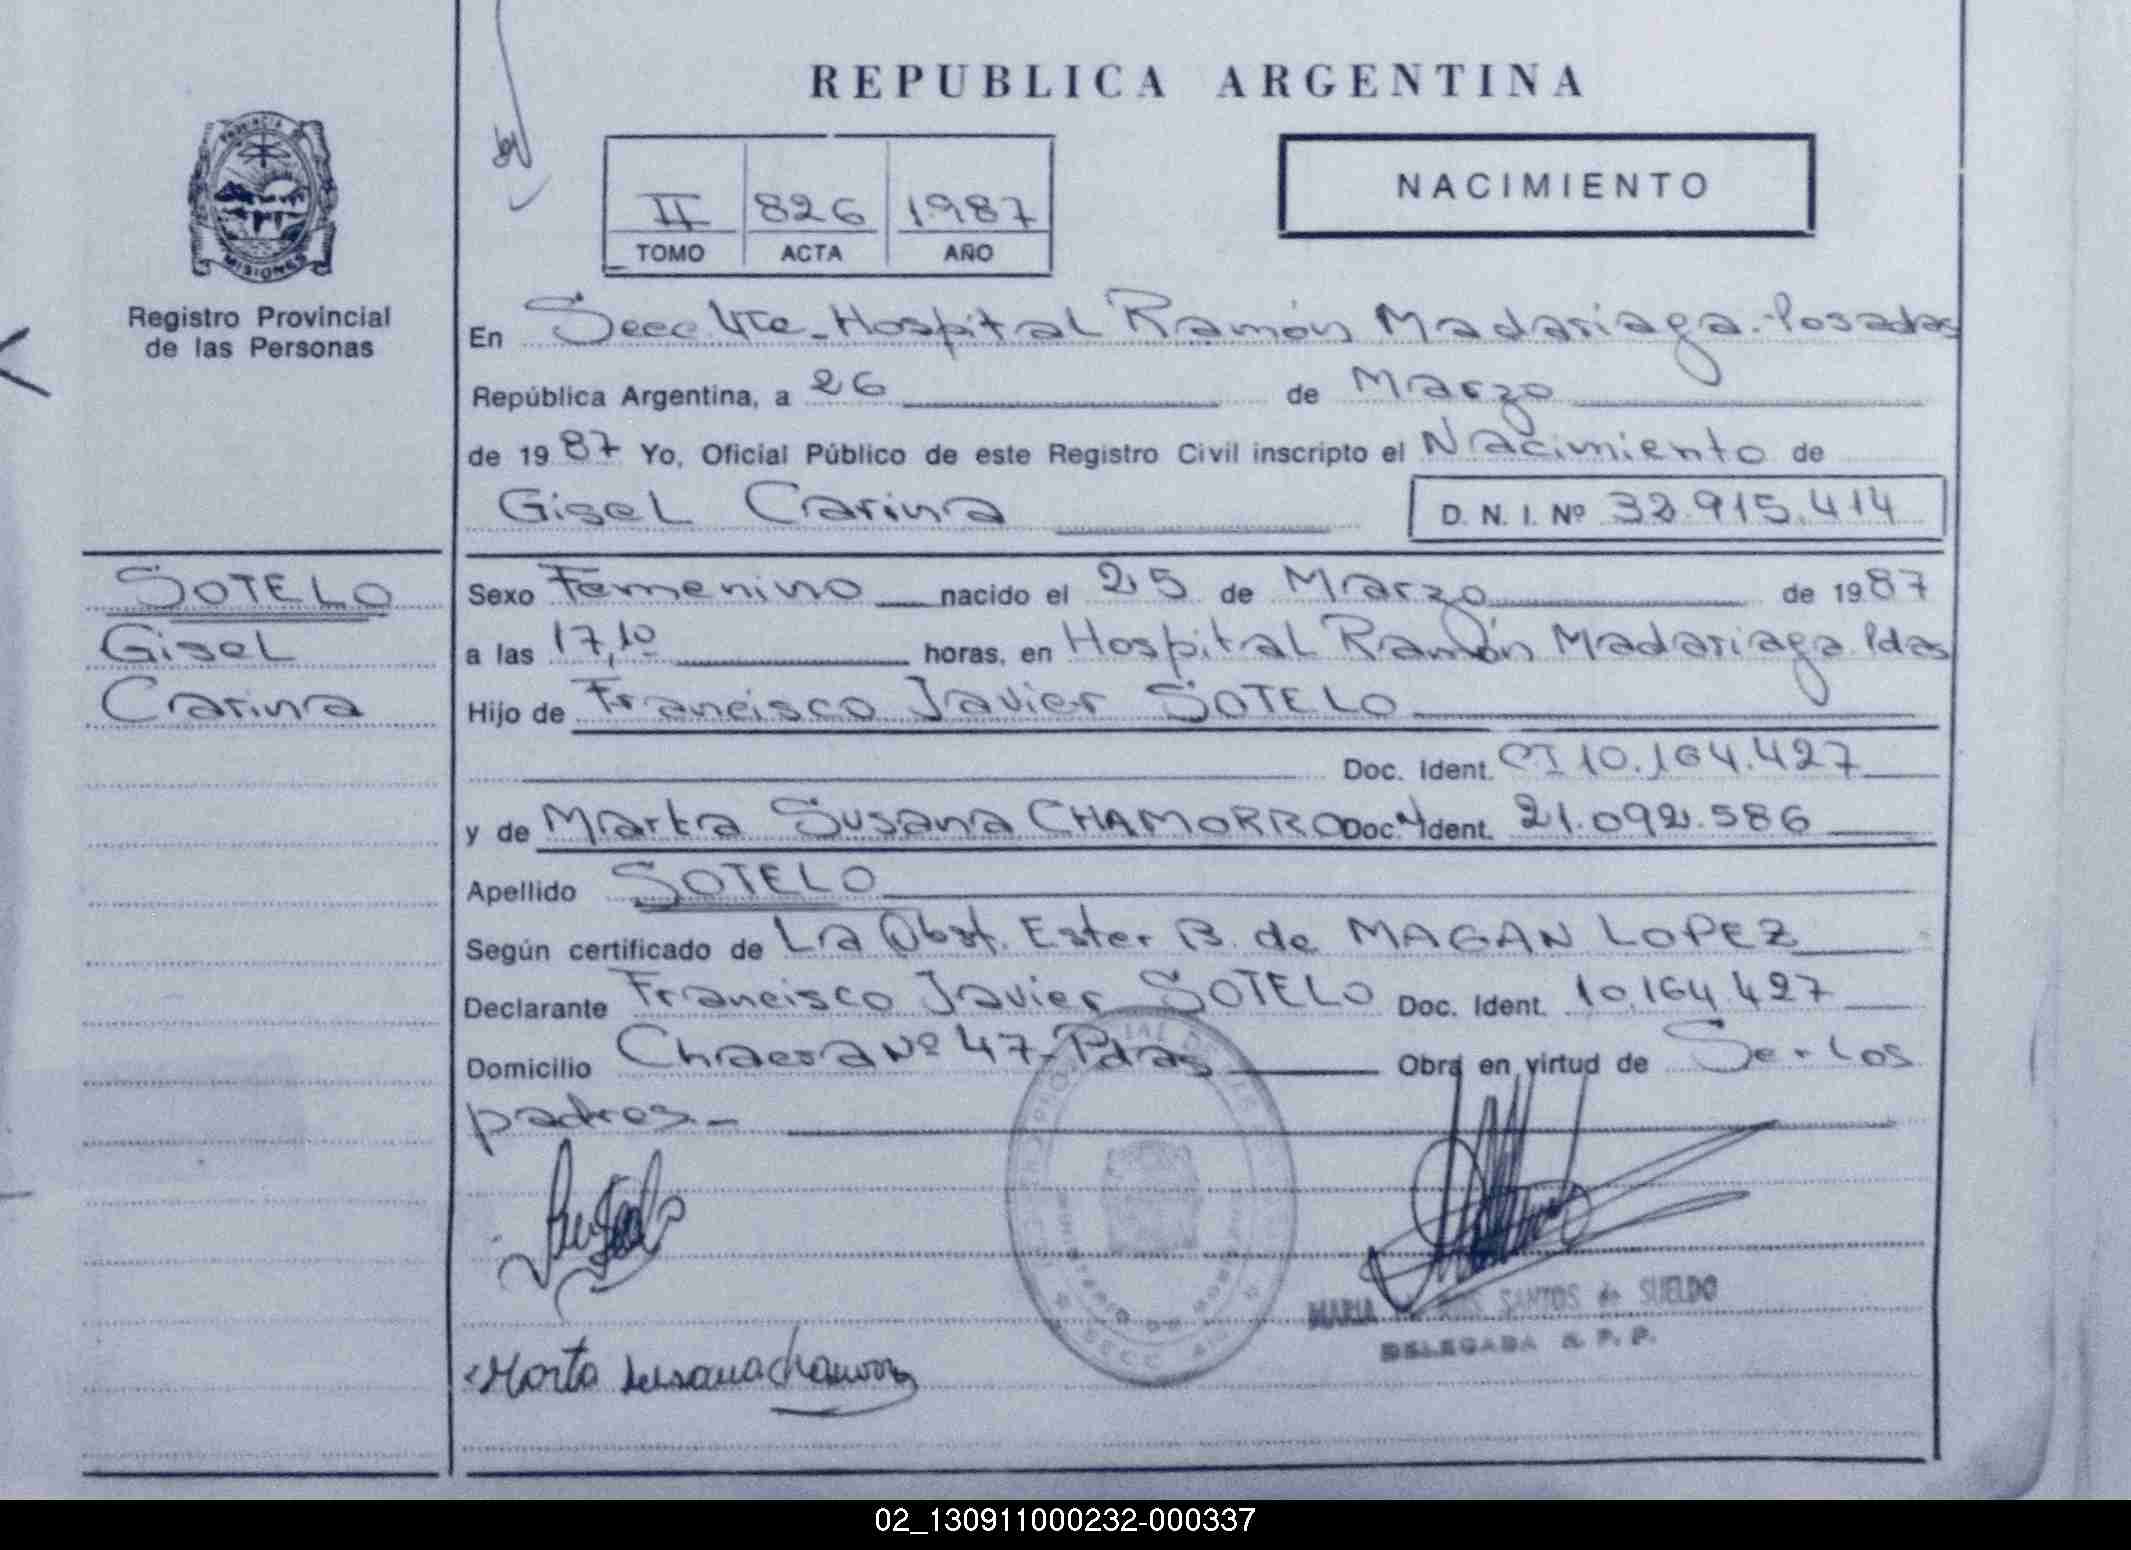 REPUBLICA ARGENTINA
PROVINCIA
MISIONES
Registro Provincial
de las Personas
II 826 1987
TOMO ACTA AÑO
NACIMIENTO
En Secc 4ta - Hospital Ramón Madariaga - Posadas
República Argentina, a 26 de Marzo
de 1987 Yo, Oficial Público de este Registro Civil inscripto el Nacimiento de
Gisel Carina D. N. I. Nº 32.915.414
SOTELO
Gisel
Carina
Sexo Femenino nacido el 25 de Marzo de 1987
a las 17,10 horas, en Hospital Ramón Madariaga Pdas
Hijo de Francisco Javier SOTELO
Doc. Ident. CI 10.164.427
y de Marta Susana CHAMORRO Doc. Ident. 21.092.586
Apellido SOTELO
Según certificado de La Obst. Ester B. de MAGAN LOPEZ
Declarante Francisco Javier SOTELO Doc. Ident. 10.164.427
Domicilio Chacra Nº 47 - Pdas Obra en virtud de Ser los
padres -
MARIA SANTOS de SUELDO
DELEGADA R. P. P.
Marta Susana Chamorro
02_130911000232-000337